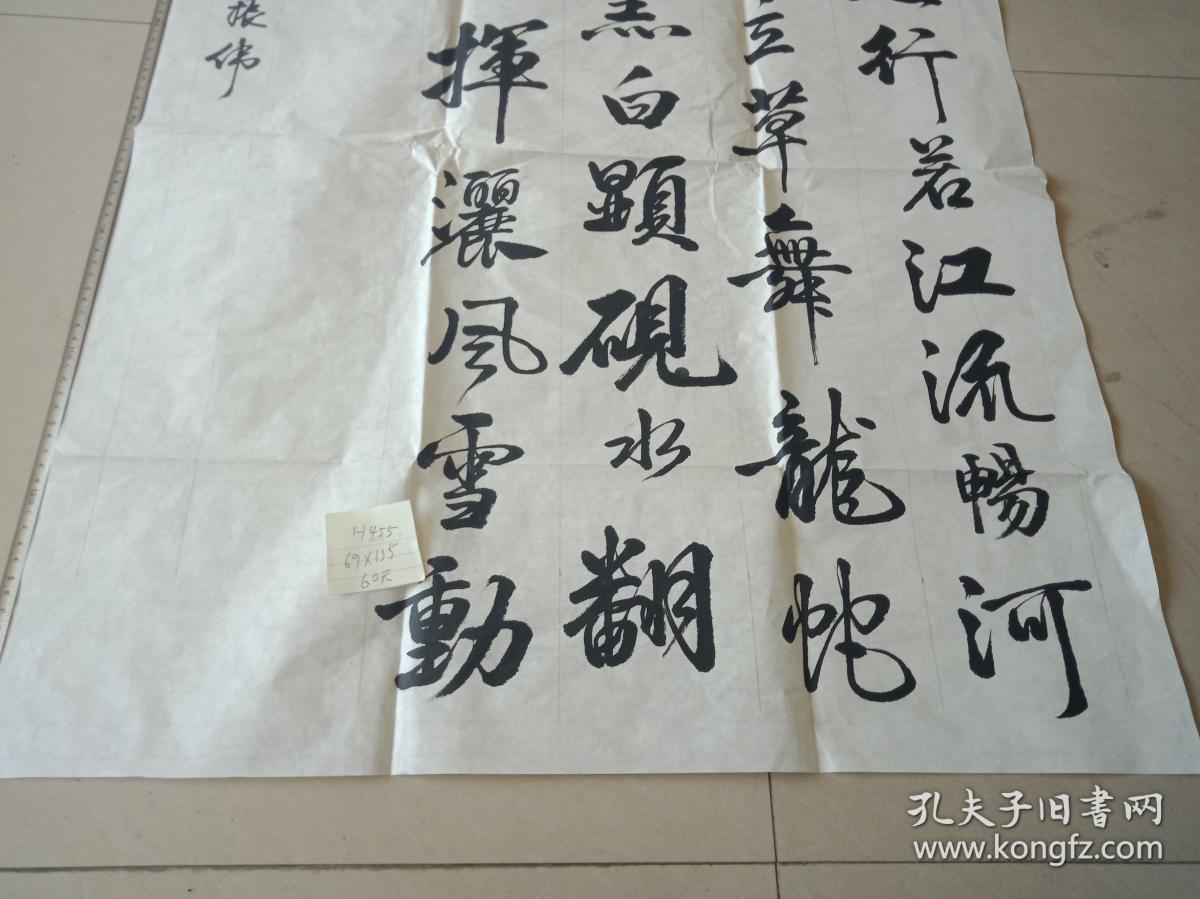 行若江流暢河
立草舞龍蛇
黑白顯硯水翻
揮灑风雪動
振伟
H455
69X135
60元
孔夫子旧書网
www.kongfz.com